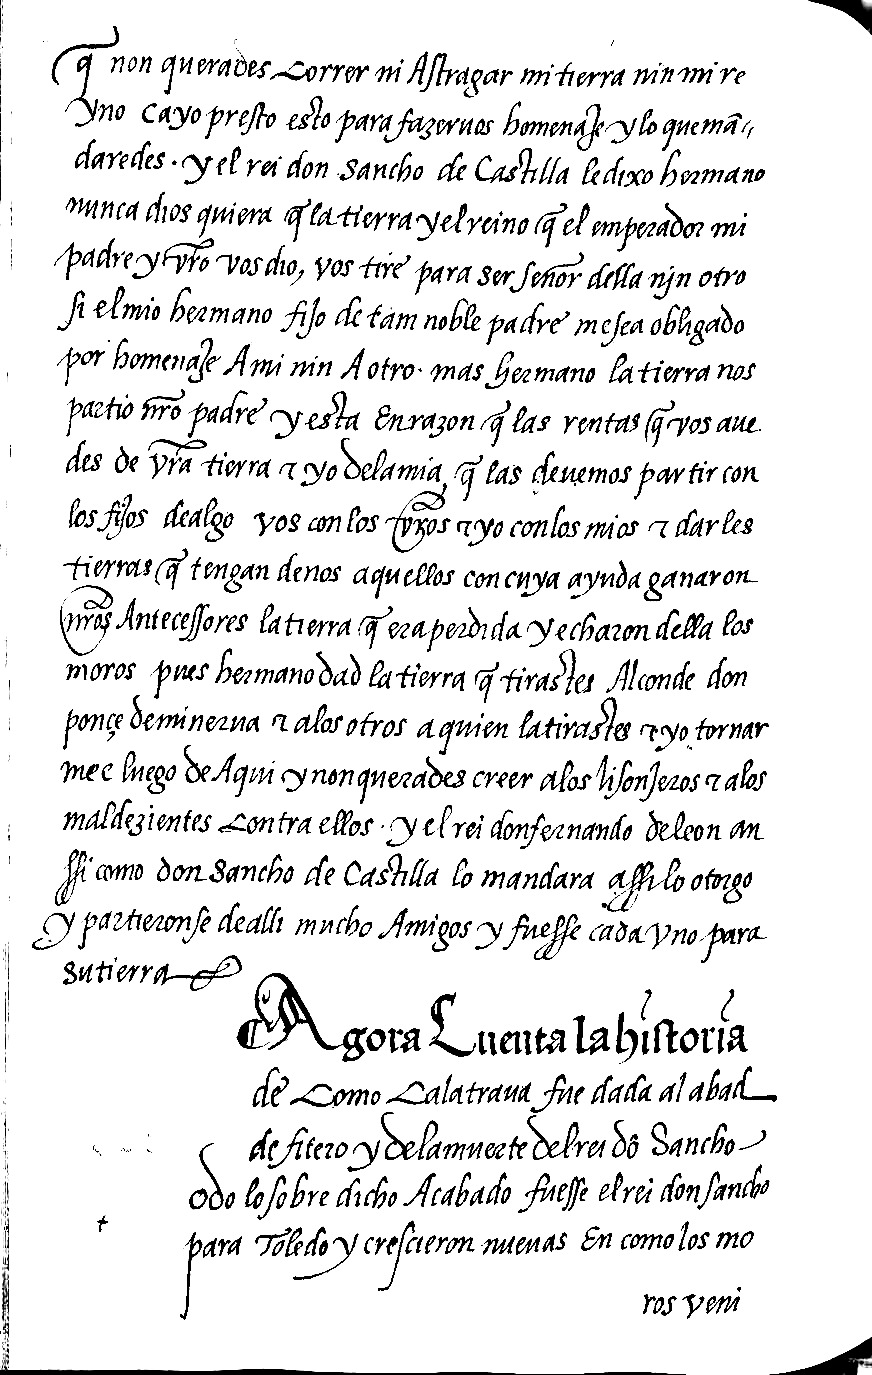 q̃ non querades correr ni Astragar mi tierra nin mi re
yno ca yo presto esto para fazervos homenaje y lo que mã
daredes. y el rei don sancho de Castilla le dixo hermano
nunca dios quiera q̃ la tierra y el reino q̃ el emperador mi
padre y vr̃o vos dio, vos tire para ser señor della nin otro
si el mio hermano fijo de tam noble padre me sea obligado
por homenaje A mi nin A otro. mas hermano la tierra nos
partio nr̃o padre y esta En razon q̃ las rentas q̃ vos aue
des de vr̃a tierra τ yo de la mia, q̃ las deuemos partir con
los fijos dealgo vos con los vr̃os τ yo con los mios τ dar les
tierras q̃ tengan de nos aquellos con cuya ayuda ganaron
nr̃os Antecessores la tierra q̃ era perdida y echaron della los
moros pues hermano dad la tierra q̃ tirastes Al conde don
ponçe de minerua τ a los otros a quien la tirastes τ yo tornar
me e luego de Aqui y non querades creer a los lisonjeros τ a los
maldezientes contra ellos. y el rei don fernando de leon an
ssi como don sancho de Castilla lo mandara assi lo otorgo
y partieronse de alli mucho Amigos y fuesse cada vno para
su tierra
Agora Cuenta la historia
de Como Calatraua fue dada al abad
de fitero y de la muerte del rei dõ Sancho
odo lo sobre dicho Acabado fuesse el rei don sancho
para Toledo y crescieron nueuas En como los mo
ros veni